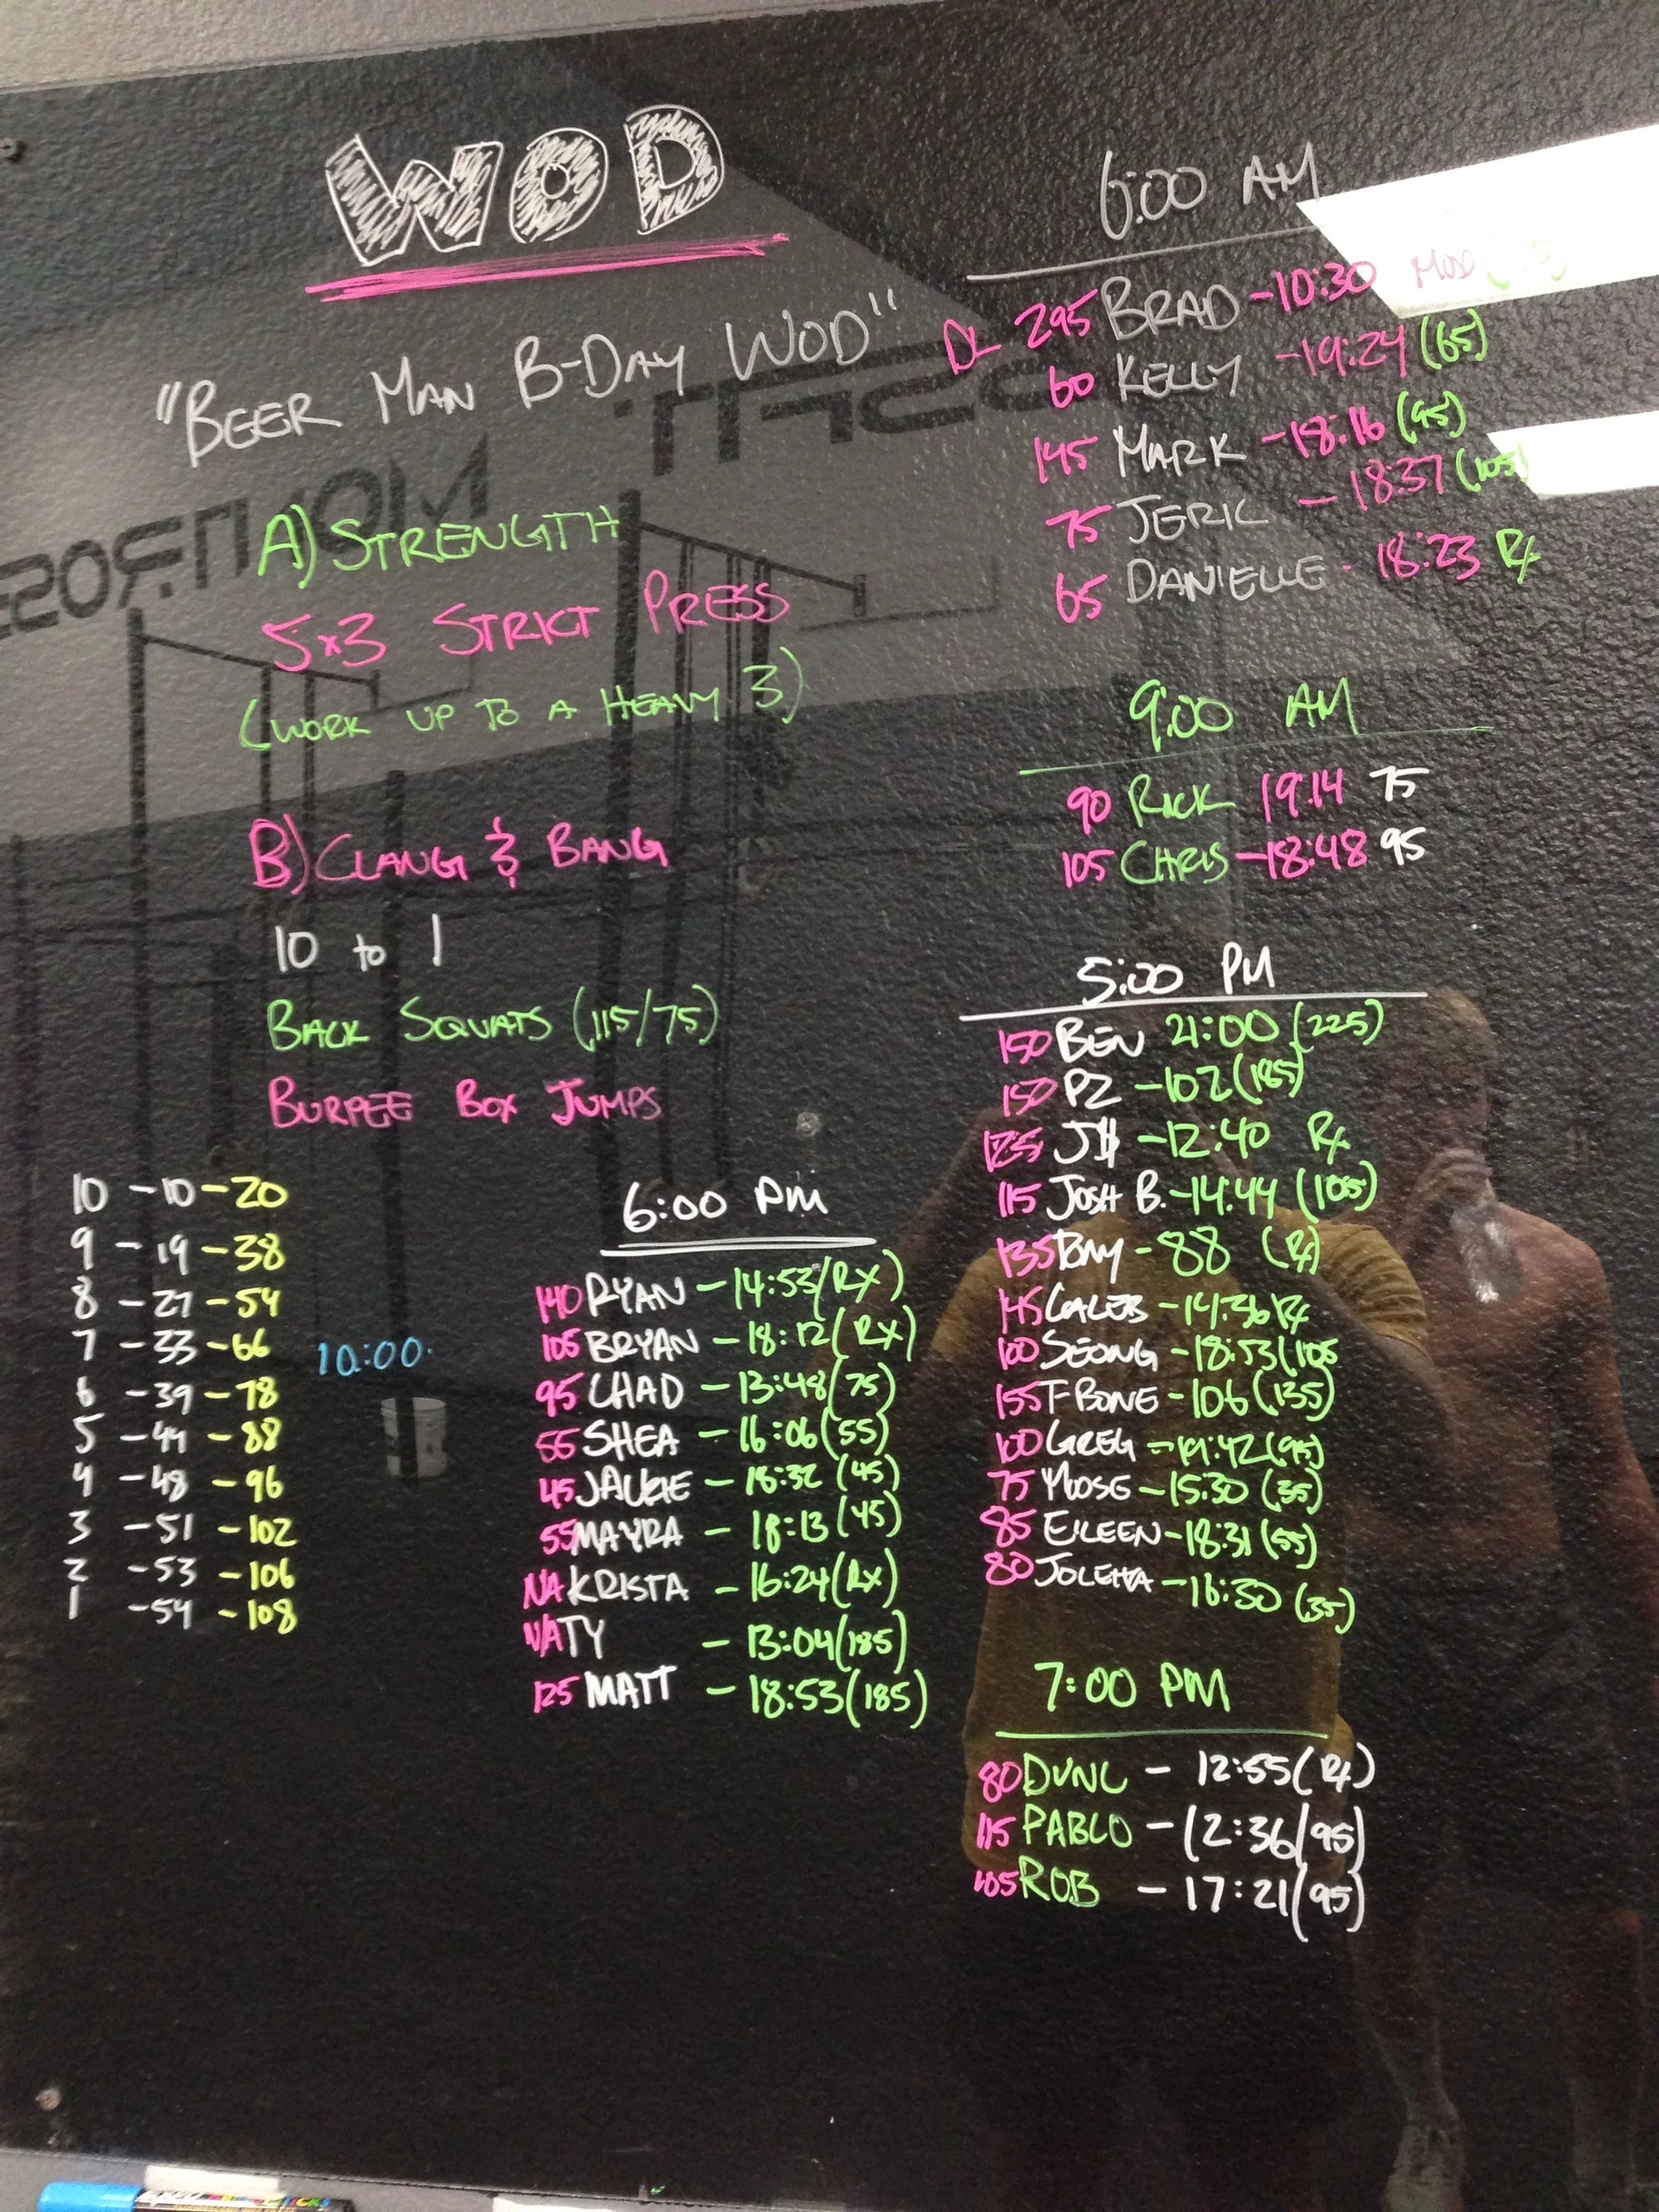 WOD
"BEER MAN B-DAY WOD"
A) STRENGTH
5x3 STRICT PRESS
(WORK UP TO A HEAVY 3)
B) CLANG & BANG
10 to 1
BACK SQUATS (115/75)
BURPEE BOX JUMPS
10 -10 -20
9 -19 -38
8 -27 -54
7 -33 -66
10:00
6 -39 -78
5 -44 -88
4 -48 -96
3 -51 -102
2 -53 -106
1 -54 -108
6:00 PM
140 RYAN -14:53 (RX)
105 BRYAN -18:12 (RX)
95 CHAD -13:48 (75)
55 SHEA -16:06 (55)
45 JACKIE -18:32 (45)
55 MAYRA - 18:13 (45)
NA KRISTA - 16:24 (RX)
NA TY - 13:04 (185)
125 MATT - 18:53 (185)
6:00 AM
DL 295 BRAD -10:30 MOD
60 KELLY -19:24 (65)
145 MARK -18:16 (95)
75 JERIC - 18:37 (105)
65 DANIELLE - 18:23 Rx
9:00 AM
90 RICK 19:14 75
105 CHRIS -18:48 95
5:00 PM
150 BEN 21:00 (225)
150 PZ -102 (185)
JH -12:40 Rx
115 JOSH B. -14:44 (105)
135 BAY -88 (Rx)
145 CALEB -14:36 Rx
100 SEONG -18:53 (105
155 T-BONE -106 (135)
100 GREG -19:42 (95)
75 MOOSE -15:30 (35)
85 EILEEN -18:31 (55)
80 JOLETTA -16:30 (35)
7:00 PM
80 DUNC - 12:55 (Rx)
115 PABLO - 12:36 (95)
105 ROB - 17:21 (95)